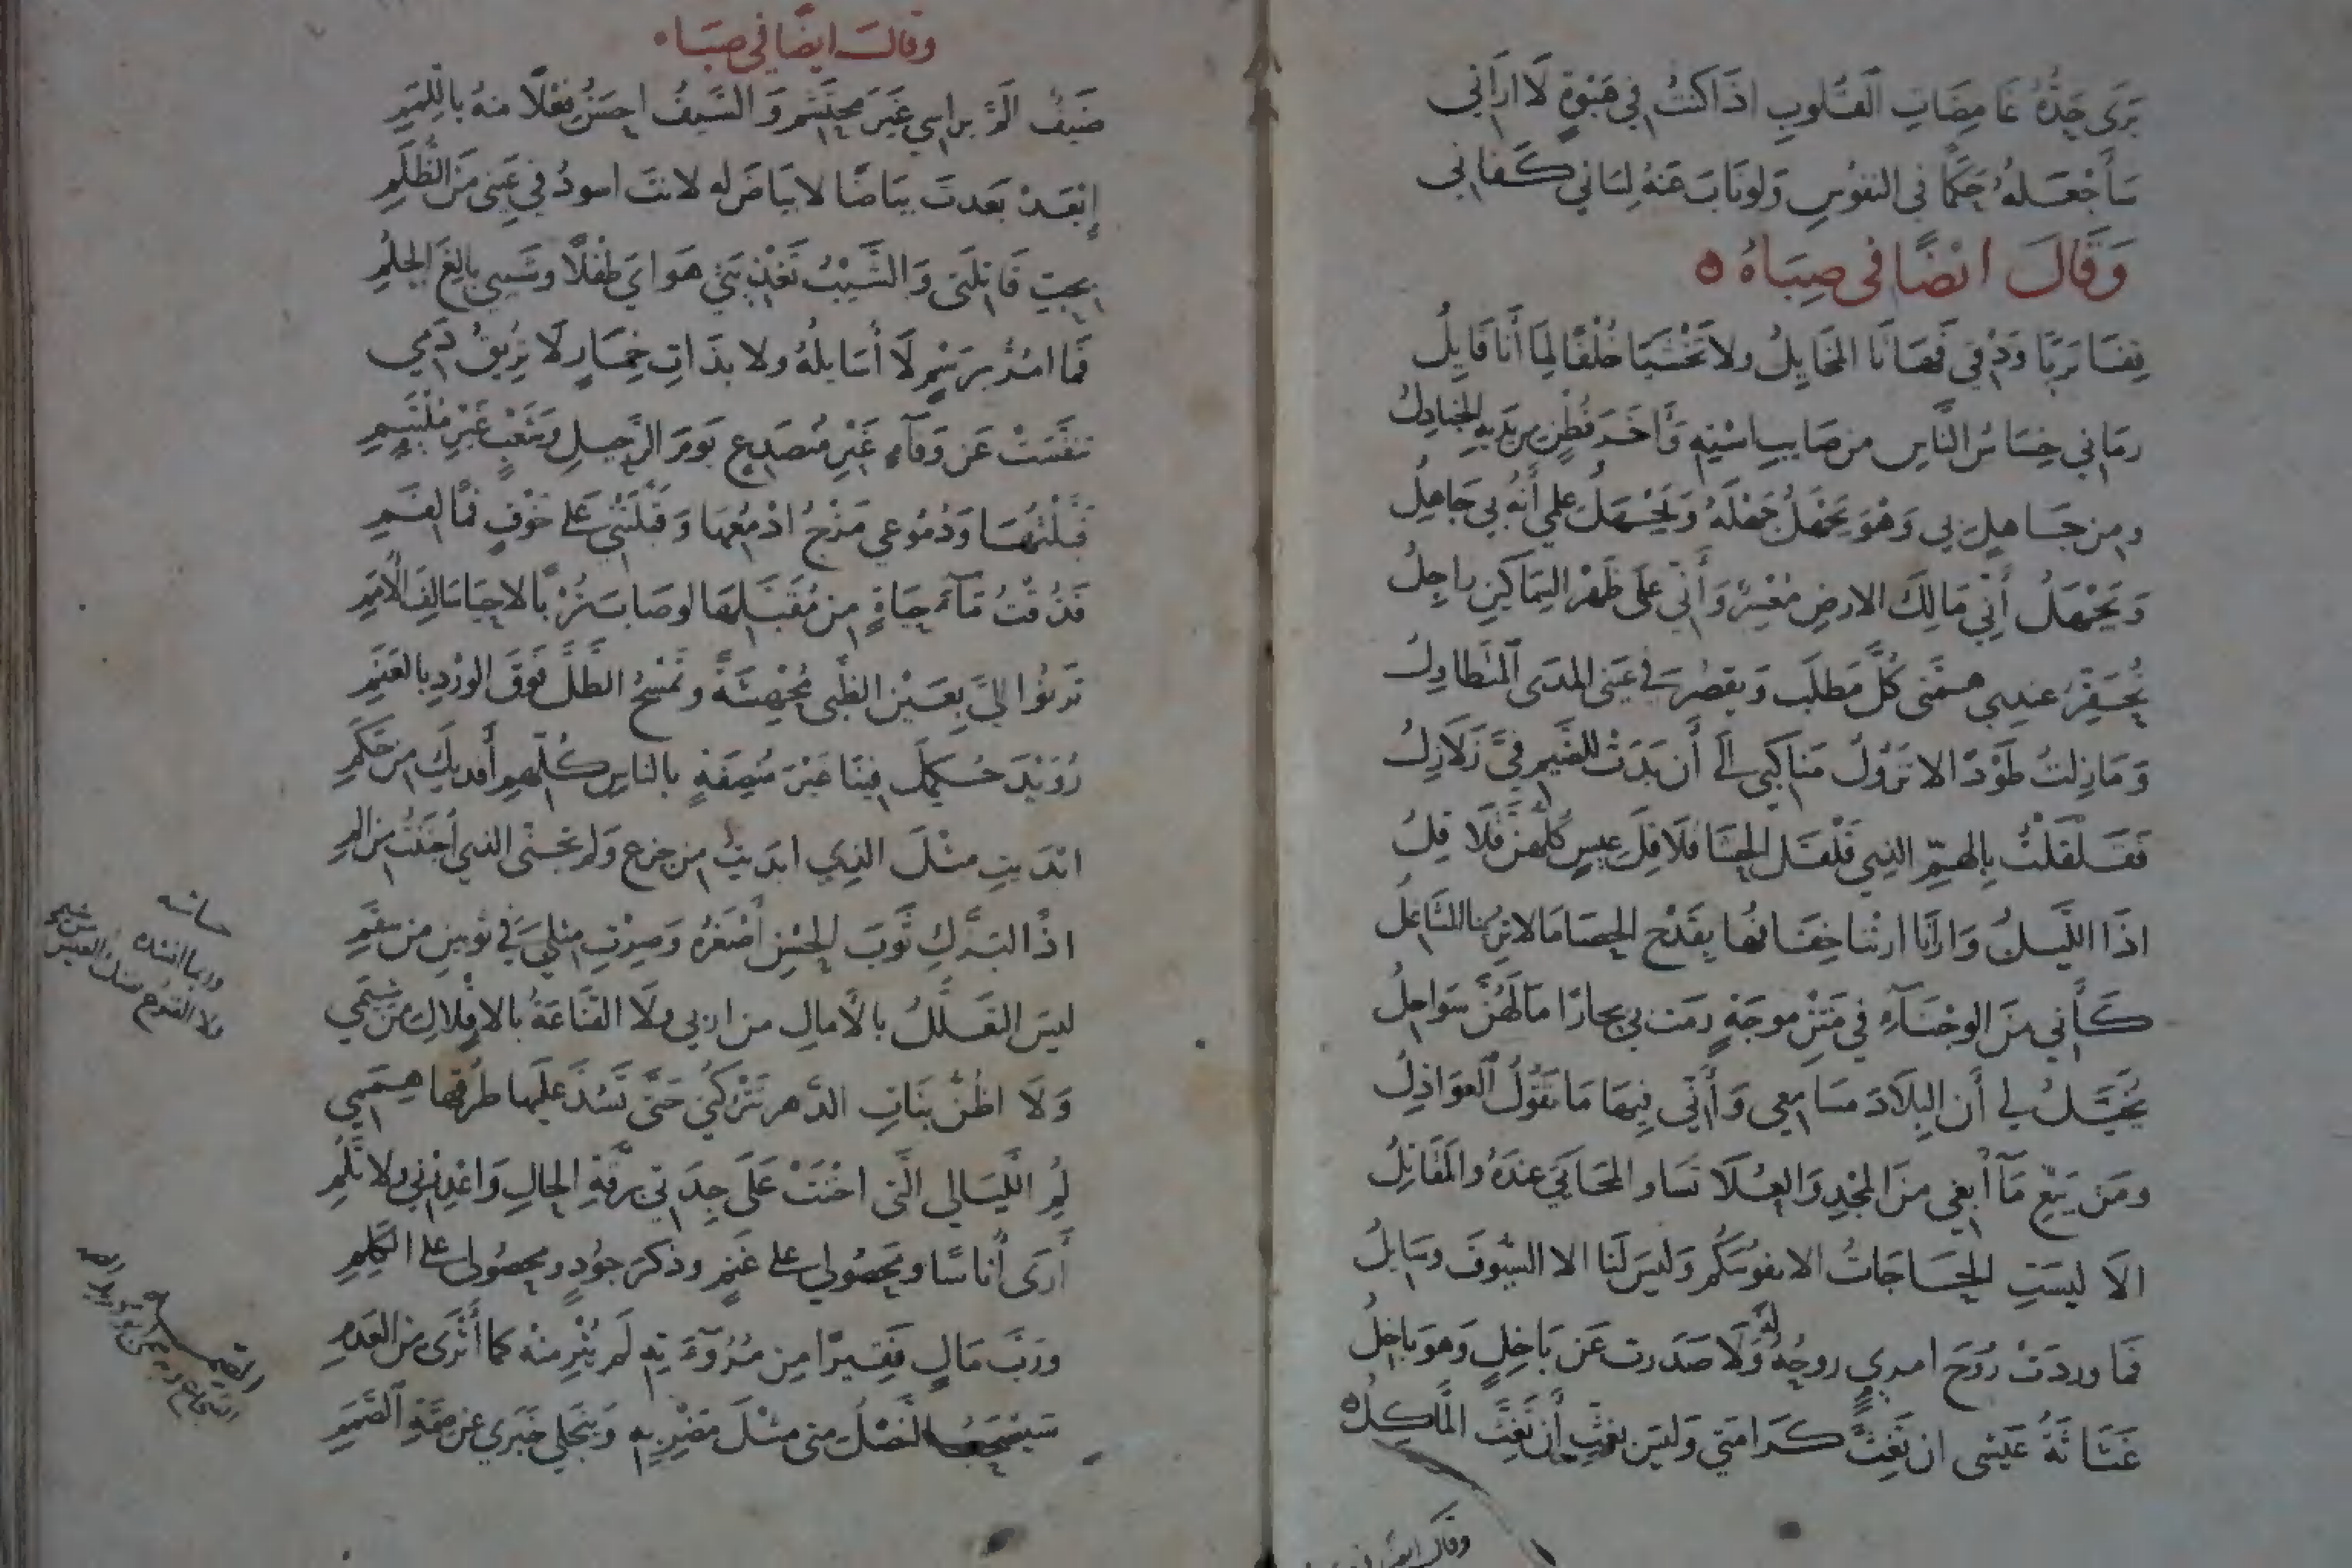 يَرَى حَدُّهُ غَامِضَاتِ القُلوبِ اذَا كنتُ فِي هَبْوَةٍ لَا ارَانِي
سَأَجْعَلهُ حَكَمًا فى النفوُسِ وَلو نَابَ عَنهُ لِسَانِي كَفانِي
وَقَالَ ايْضًا فى صِبَاهُ
قِفَا تَرَيَا وَدْقِي فَهَاتَا المَخَايِلُ ولا تَخْشَيَا خُلْفًا لِمَا أَنَا قَايِلُ
رمَانِي خِسَاسُ النَّاسِ من صَايبِ اسْتِهِ وَآخَرَ قُطْنٍ مِن يَدَيهِ الجَنادِلُ
ومِن جَاهلٍ بِي وَهْوَ يَجْهَلُ جَهْلَهُ وَيَجْهَلُ عِلمِي أَنهُ بِي جَاهِلُ
وَيَجْهَلُ أَنِّي مَالِكَ الارضِ مُعْسِرٌ وَأَنِّي عَلَى ظَهْرِ السِّمَاكَينِ رِاجِلُ
تُحَقِّرُ عندِي همَّتى كُلَّ مَطلَبٍ وَيقصُرُ فى عَينى المدَى المُتَطاوِلُ
وَمَا زِلتُ طَوْدًا لا تزُولُ مَنَاكبِي الى أَن بَدَتْ للضَّيمِ فِيَّ زَلَازِلُ
فَقَلْقَلْتُ بِالهَمِّ الذِي قَلْقَلَ الحَشَا قَلَاقِلَ عِيسٍ كلّهنَّ قَلَاقِلُ
اذَا اللَّيلُ وَارَانَا ارتْنا خِفَافُها بِقَدْحِ الحصَا مَا لا تُرِينَا المشَاعلُ
كَأَنِي منَ الوجْنَآءِ فِي مَتْنِ موجَةٍ رمَت بِي بِحارًا مَا لَهُنَّ سَواحِلُ
يُخَيَّلُ لِي أَن البِلَادَ مسَامِعِي وَأَنِّي فِيهَا مَا تقُولُ العوَاذِلُ
ومَن يَبْغِ مَآ أَبْغِي منَ المجْدِ وَالعُلَا تَسَاو المَحَايَي عندَهُ والمقَاتِلُ
الَا ليسَتِ الحَاجَاتُ الا نفوسَكُم وَليسَ لَنَا الا السُّيوفَ وسَايِلُ
فمَا وردَتْ رُوحَ امرِيٍ روحُهُ لَهُ وَلَا صَدَرت عَن بَاخلٍ وَهوَ بَاخِلُ
غَثَاثَةُ عَيْشى ان تَغِثَّ كَرَامَتِي وَليسَ بغَثٍّ أَن تَغِثَّ المَآكِلُ
وقال ايضا في
وقال ايضًا في صبَاه
ضَيفٌ الَمَّ برَاسِي غَيرَ محتَشمِ وَالسَّيفُ احسَنُ فِعْلًا منهُ باللِّمَمِ
إِبْعَدْ بَعِدتَ بيَاضًا لا بيَاضَ له لانتَ اسودُ في عَينى منَ الظُّلَمِ
بِحُبِّ قَاتِلَتى وَالشَّيْبُ تَغْذِيَتِي هَوايَ طِفْلًا وشَيبِي بالِغَ الحلُمِ
فَمَا امُرُّ برَسْمٍ لَا أُسَايلُهُ ولا بذَاتِ خِمَارٍ لَا تُرِيقُ دَمِي
تنفَّسَتْ عَن وَفآءٍ غَيْرِ مُنصَدِعٍ يَومَ الرَّحِيلِ وشَعْبٍ غَيْرِ مُلتَئِمِ
قَبَّلْتُهَا وَدُمُوعِي مَزْجُ ادْمُعِهَا وَقَبَّلَتْنِي عَلى خَوْفٍ فمًا لِفَمِ
قَد ذُقتُ مَآءَ حيَاةٍ مِن مُقَبَّلِهَا لو صَابَ تُرْبًا لاحيَا سَالِفَ الأُمَمِ
تَرنُوا اليَّ بِعَيْنِ الظَّبْى مُجْهِشَةً وتَمْسَحُ الطَّلَّ فَوقَ الورْدِ بالعَنَمِ
رُوَيْدَ حُكمِكِ فِينَا غَيْرَ مُنصِفَةٍ بالناسِ كُلِّهِمِ أَفدِيكِ مِن حَكَمِ
ابْدَيتِ مِثْلَ الذِي ابدَيتُ مِن جزعٍ وَلم تُجِنِّى الذي أَجنَنْتُ مِن المِ
اذًا لَبَزَّكِ ثَوبَ الحُسْنِ أَصْغَرُهُ وَصِرْتِ مِثلِيَ فى ثوبينِ من سَقَمِ
ليسَ التَّعَلُّلُ بالآمالِ من اربِي ولَا القنَاعَةُ بالاقْلالِ مِن شِيَمِي
وَلَا اظُنُّ بَنَاتِ الدَّهرِ تَتْرُكُنِي حَتَّى تَسُدَّ عَلَيهَا طُرقَها هِمَمِي
لُمِ اللَّيَالِي الَّتى اخْنَتْ عَلَى جِدَتِي بِرقَّةِ الحَالِ وَاعْذِرْنِي ولا تَلُمِ
أَرَى أُناسًا ومَحصُولِي على غَنَمٍ وذكرَ جُودٍ ومحصُولِي على الكَلِمِ
ورَبَّ مَالٍ فَقِيرًا مِن مُرُوَّتِهِ لَم يُثْرِ مِنْهُ كما أَثْرَى منَ العَدَمِ
سَيَصْحَبُ النَّصْلُ منى مثْلَ مَضْرِبِهِ وَينجَلِي خَبَرِي عن صِمَّةِ الصِّمَمِ
حاشيه
وربما انشده
الصمه
الشجاع